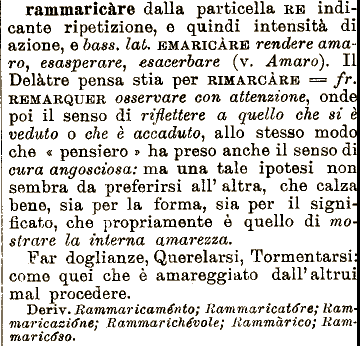 rammaricàre dalla particella RE indi-
cante ripetizione, e quindi intensità di
azione, e bass. lat. EMARICÀRE rendere ama-
ro, esasperare, esacerbare (v. Amaro). Il
Delàtre pensa stia per RIMARCÀRE = fr.
REMARQUER osservare con attenzione, onde
poi il senso di riflettere a quello che si è
veduto o che è accaduto, allo stesso modo
che « pensiero » ha preso anche il senso di
cura angosciosa: ma una tale ipotesi non
sembra da preferirsi all' altra, che calza
bene, sia per la forma, sia per il signi-
ficato, che propriamente è quello di mo-
strare la interna amarezza.
Far doglianze, Querelarsi, Tormentarsi:
come quei che è amareggiato dall'altrui
mal procedere.
Deriv. Rammaricaménto; Rammaricatóre; Ram-
maricazióne; Rammarichévole; Rammàrico; Ram-
maricóso.